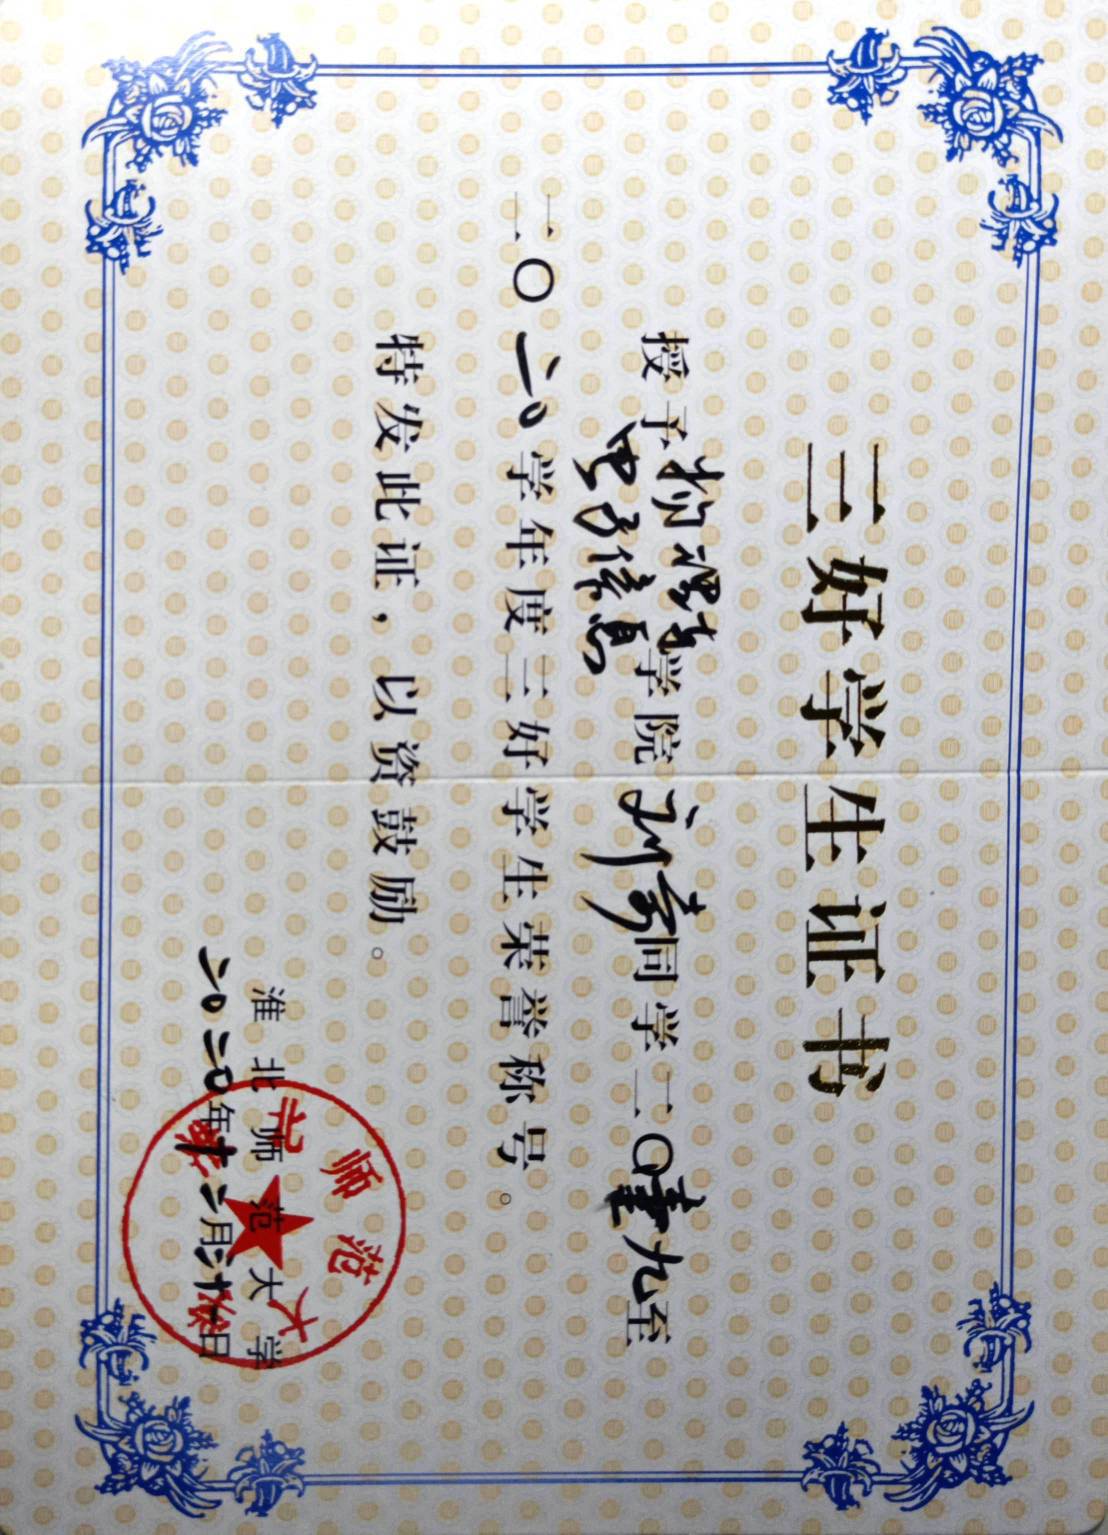 三好学生证书
授予物理与电子信息学院同学二〇壹九至
二〇二〇学年度三好学生荣誉称号。
特发此证，以资鼓励。
淮北师范大学
二〇二〇年十二月三十一日
北师范大